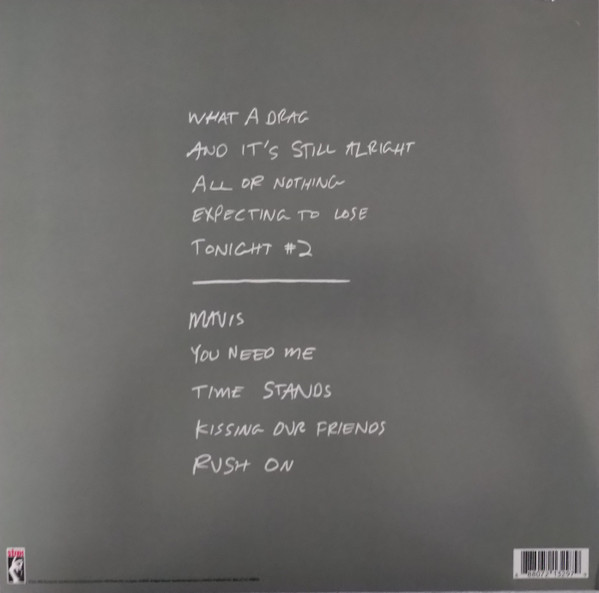 WHAT A DRAG
AND IT'S STILL ALRIGHT
ALL OR NOTHING
EXPECTING TO LOSE
TONIGHT #2
MAVIS
YOU NEED ME
TIME STANDS
KISSING OUR FRIENDS
RUSH ON